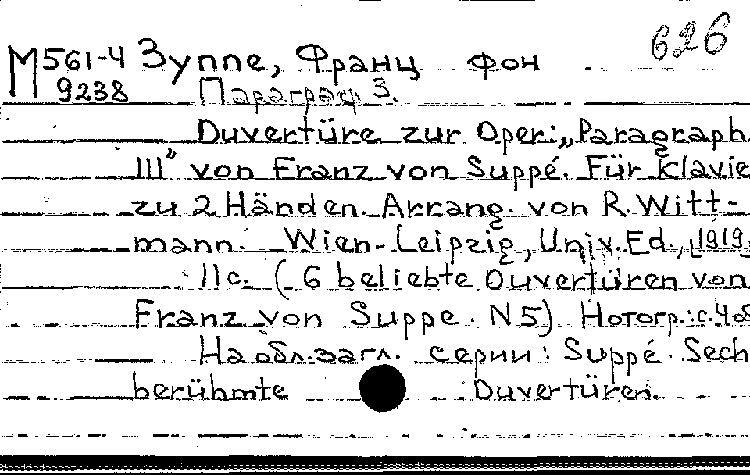 626
М 561-4 Зуппе, Франц фон
9238 Параграф 3.
Ouvertüre zur Oper: „Paragraph
III" von Franz von Suppé. Für Klavie
zu 2 Händen. Arrang. von R. Witt-
mann. Wien-Leipzig, Univ. Ed., [1919]
11 с. (6 beliebte Ouvertüren von
Franz von Suppe. N 5) Нотогр.: с. 4 об
На обл. загл. серии: Suppé. Sech
berühmte Ouvertüren.